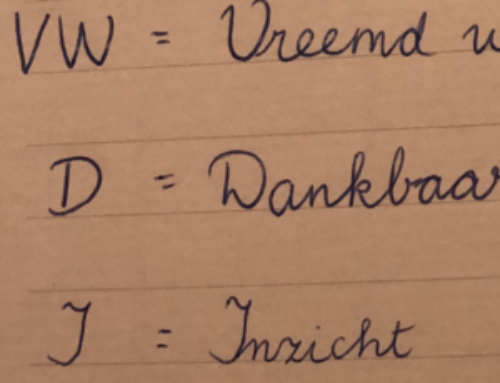 VW = Vreemd
D = Dankbaar
I = Inzicht